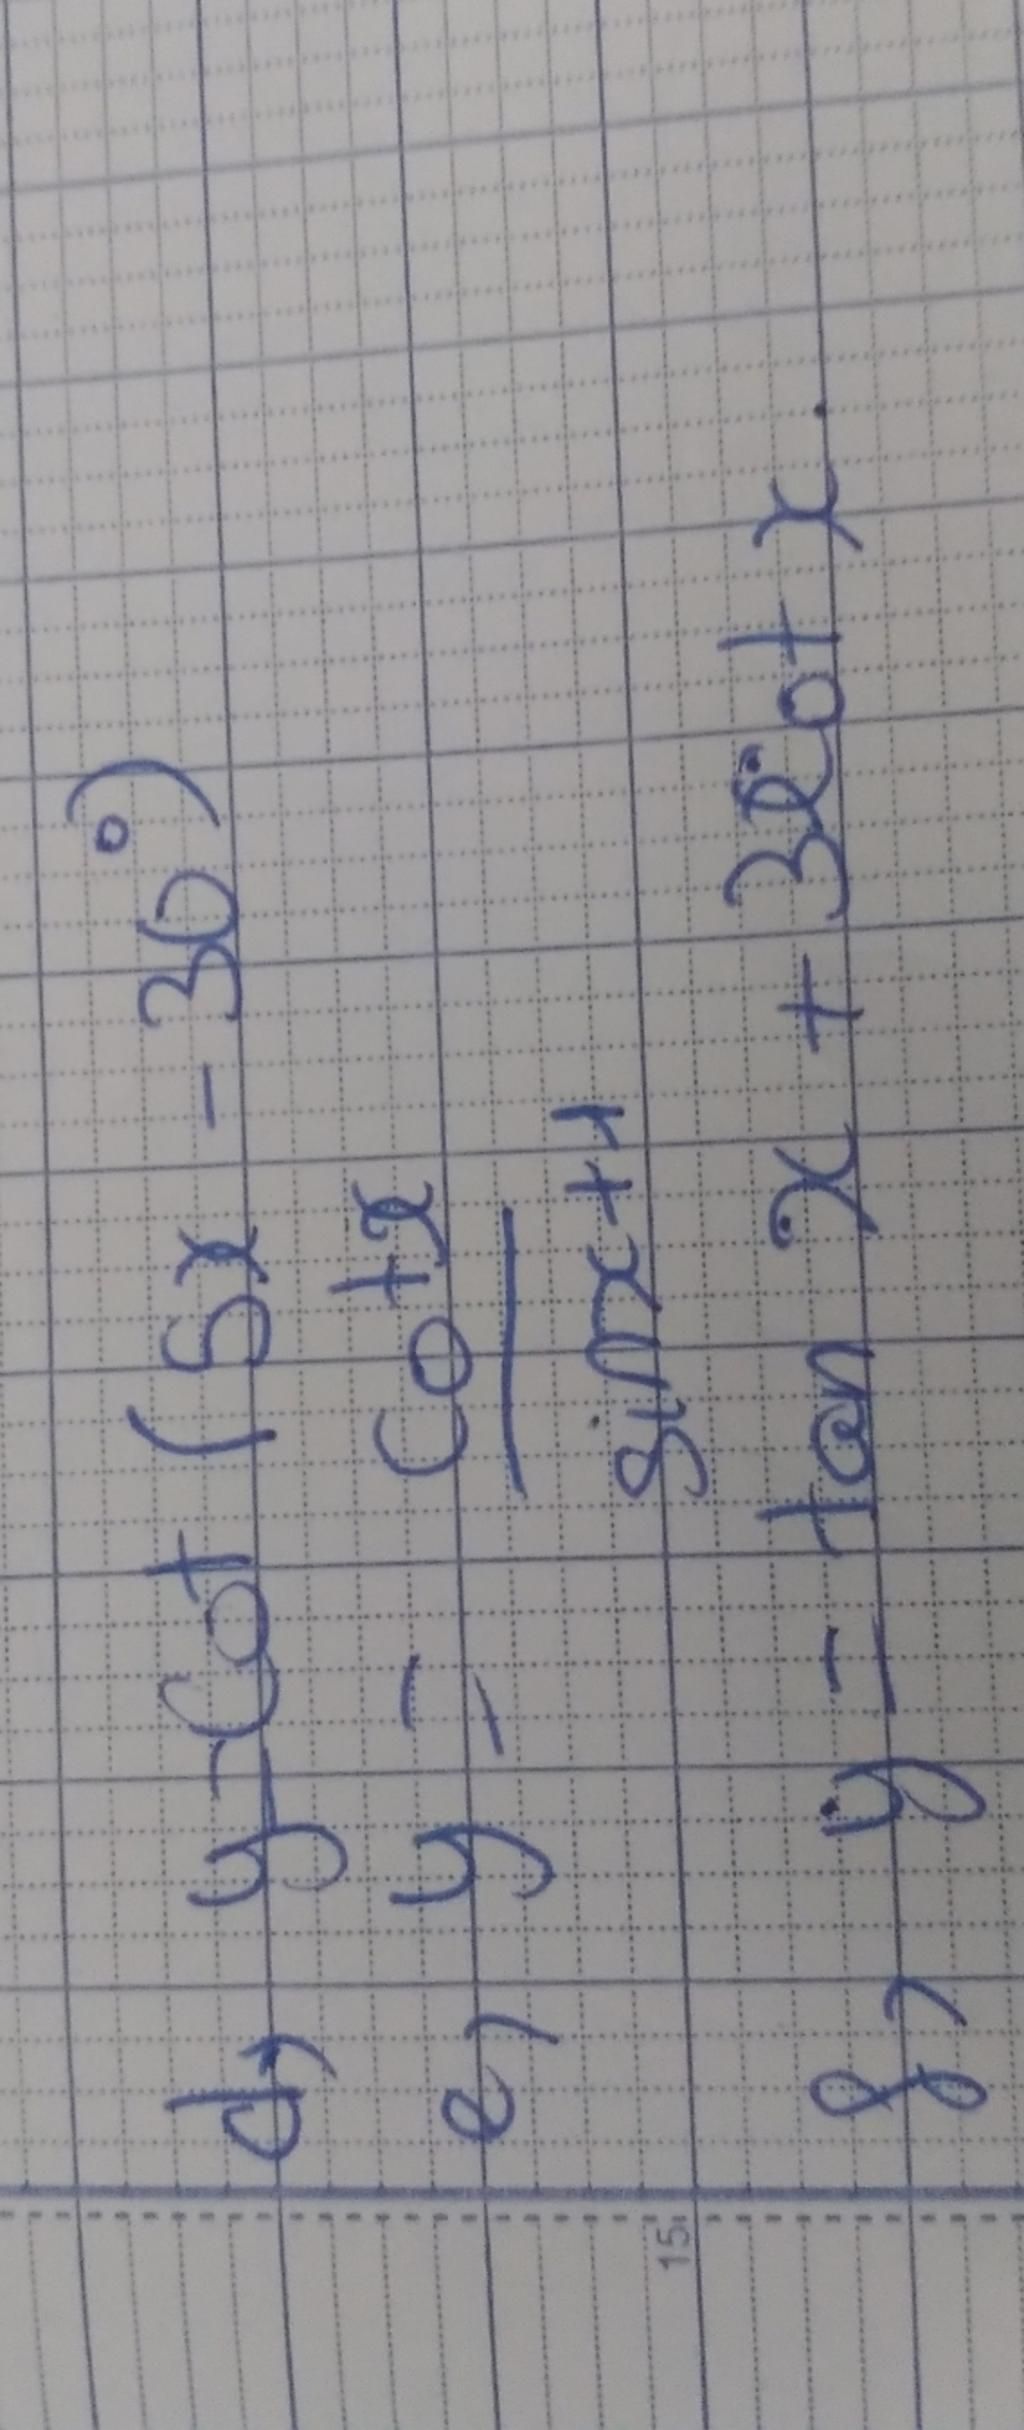 d, y = cot (5x - 30°)
e, y = cotx
sinx+1
f, y = tan x + 3cot x.
15